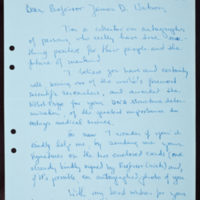 Dear Professor James D. Watson,
I'm a collector on autographs
of persons who really have done some-
thing positive for their people and the
future of mankind.
I believe you have and certainly
one of the world's foremost
scientific researchers, and awarded the
Nobel Prize for your DNA structure deter-
mination, of the greatest importance in
today's medical science.
So now I wonder if you'd
kindly help me by sending me your
signatures on the two enclosed cards (one
already kindly signed by Professor Crick) and,
if it's possible an autographed photo of you.
With my best wishes for your